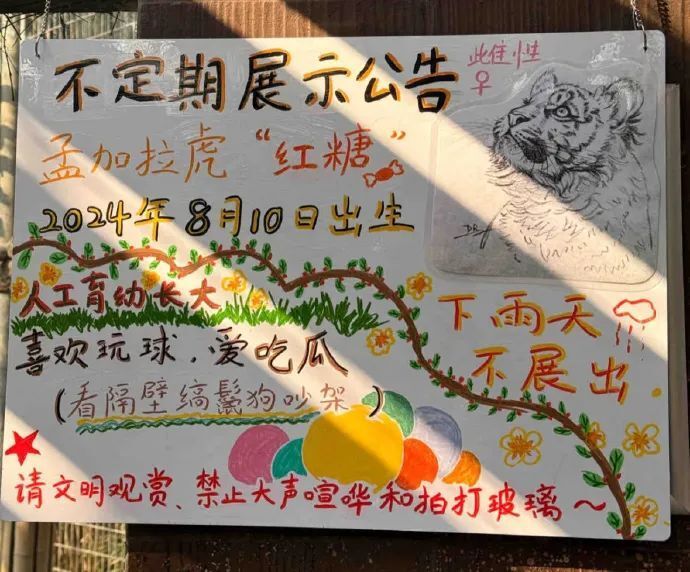 不定期展示公告
此雌性
♀
孟加拉虎“红糖”
2024年8月10日出生
人工育幼长大
喜欢玩球，爱吃瓜
(看隔壁缟鬣狗吵架)
下雨天
不展出
请文明观赏、禁止大声喧哗和拍打玻璃～